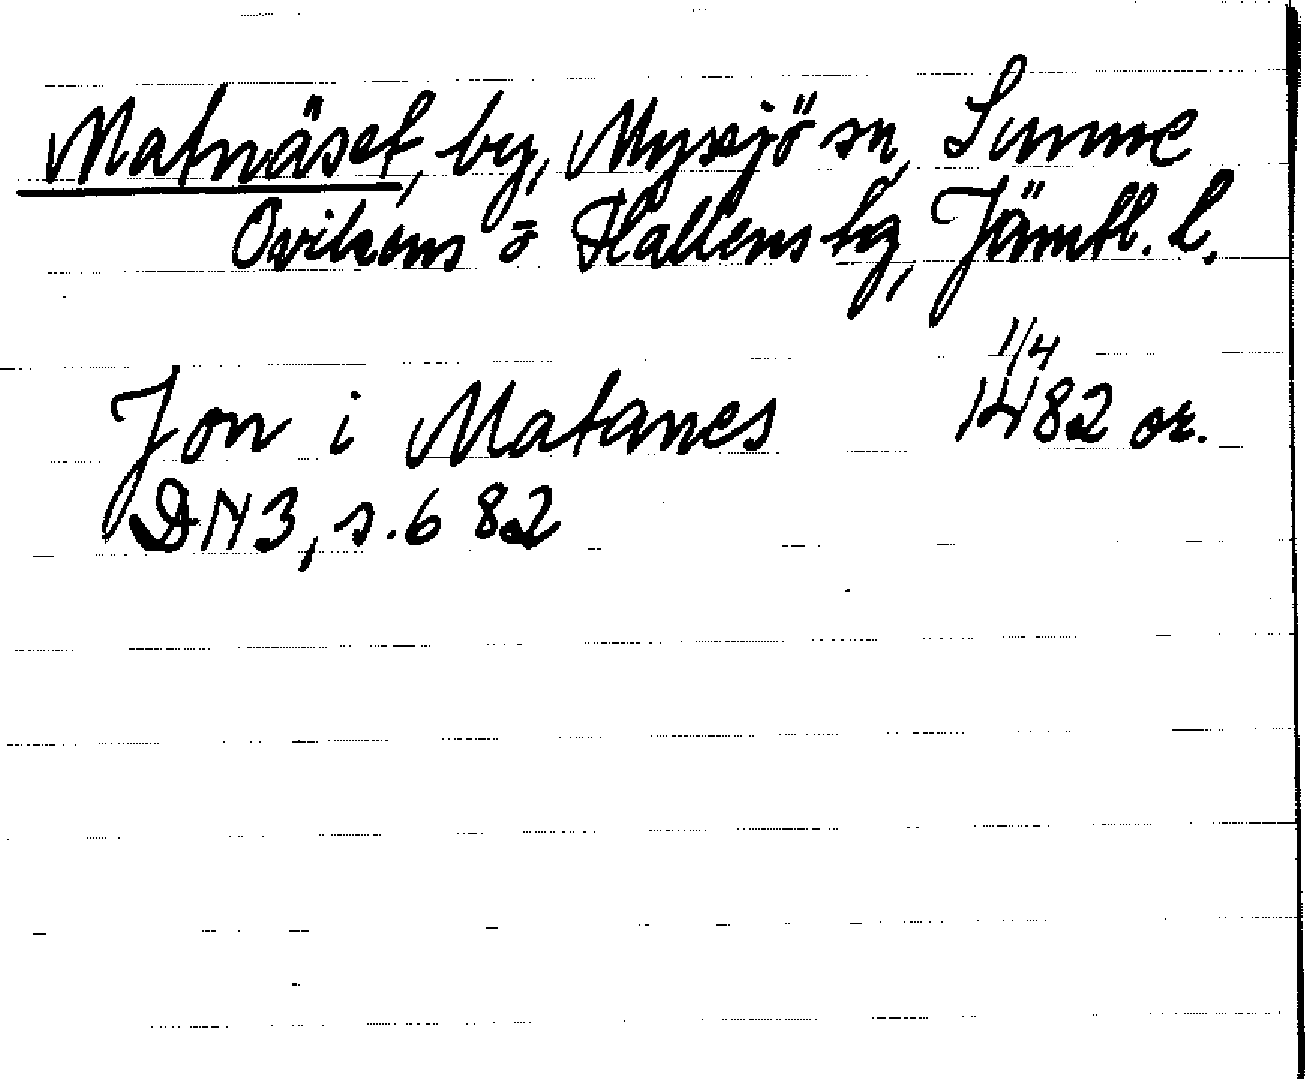 Matnäset, by, Myssjö sn, Sunne
Ovikens o Hallens tg, Jämtl. l.
Jon i Matanes 1/4 1482 or.
DN 3, s. 682